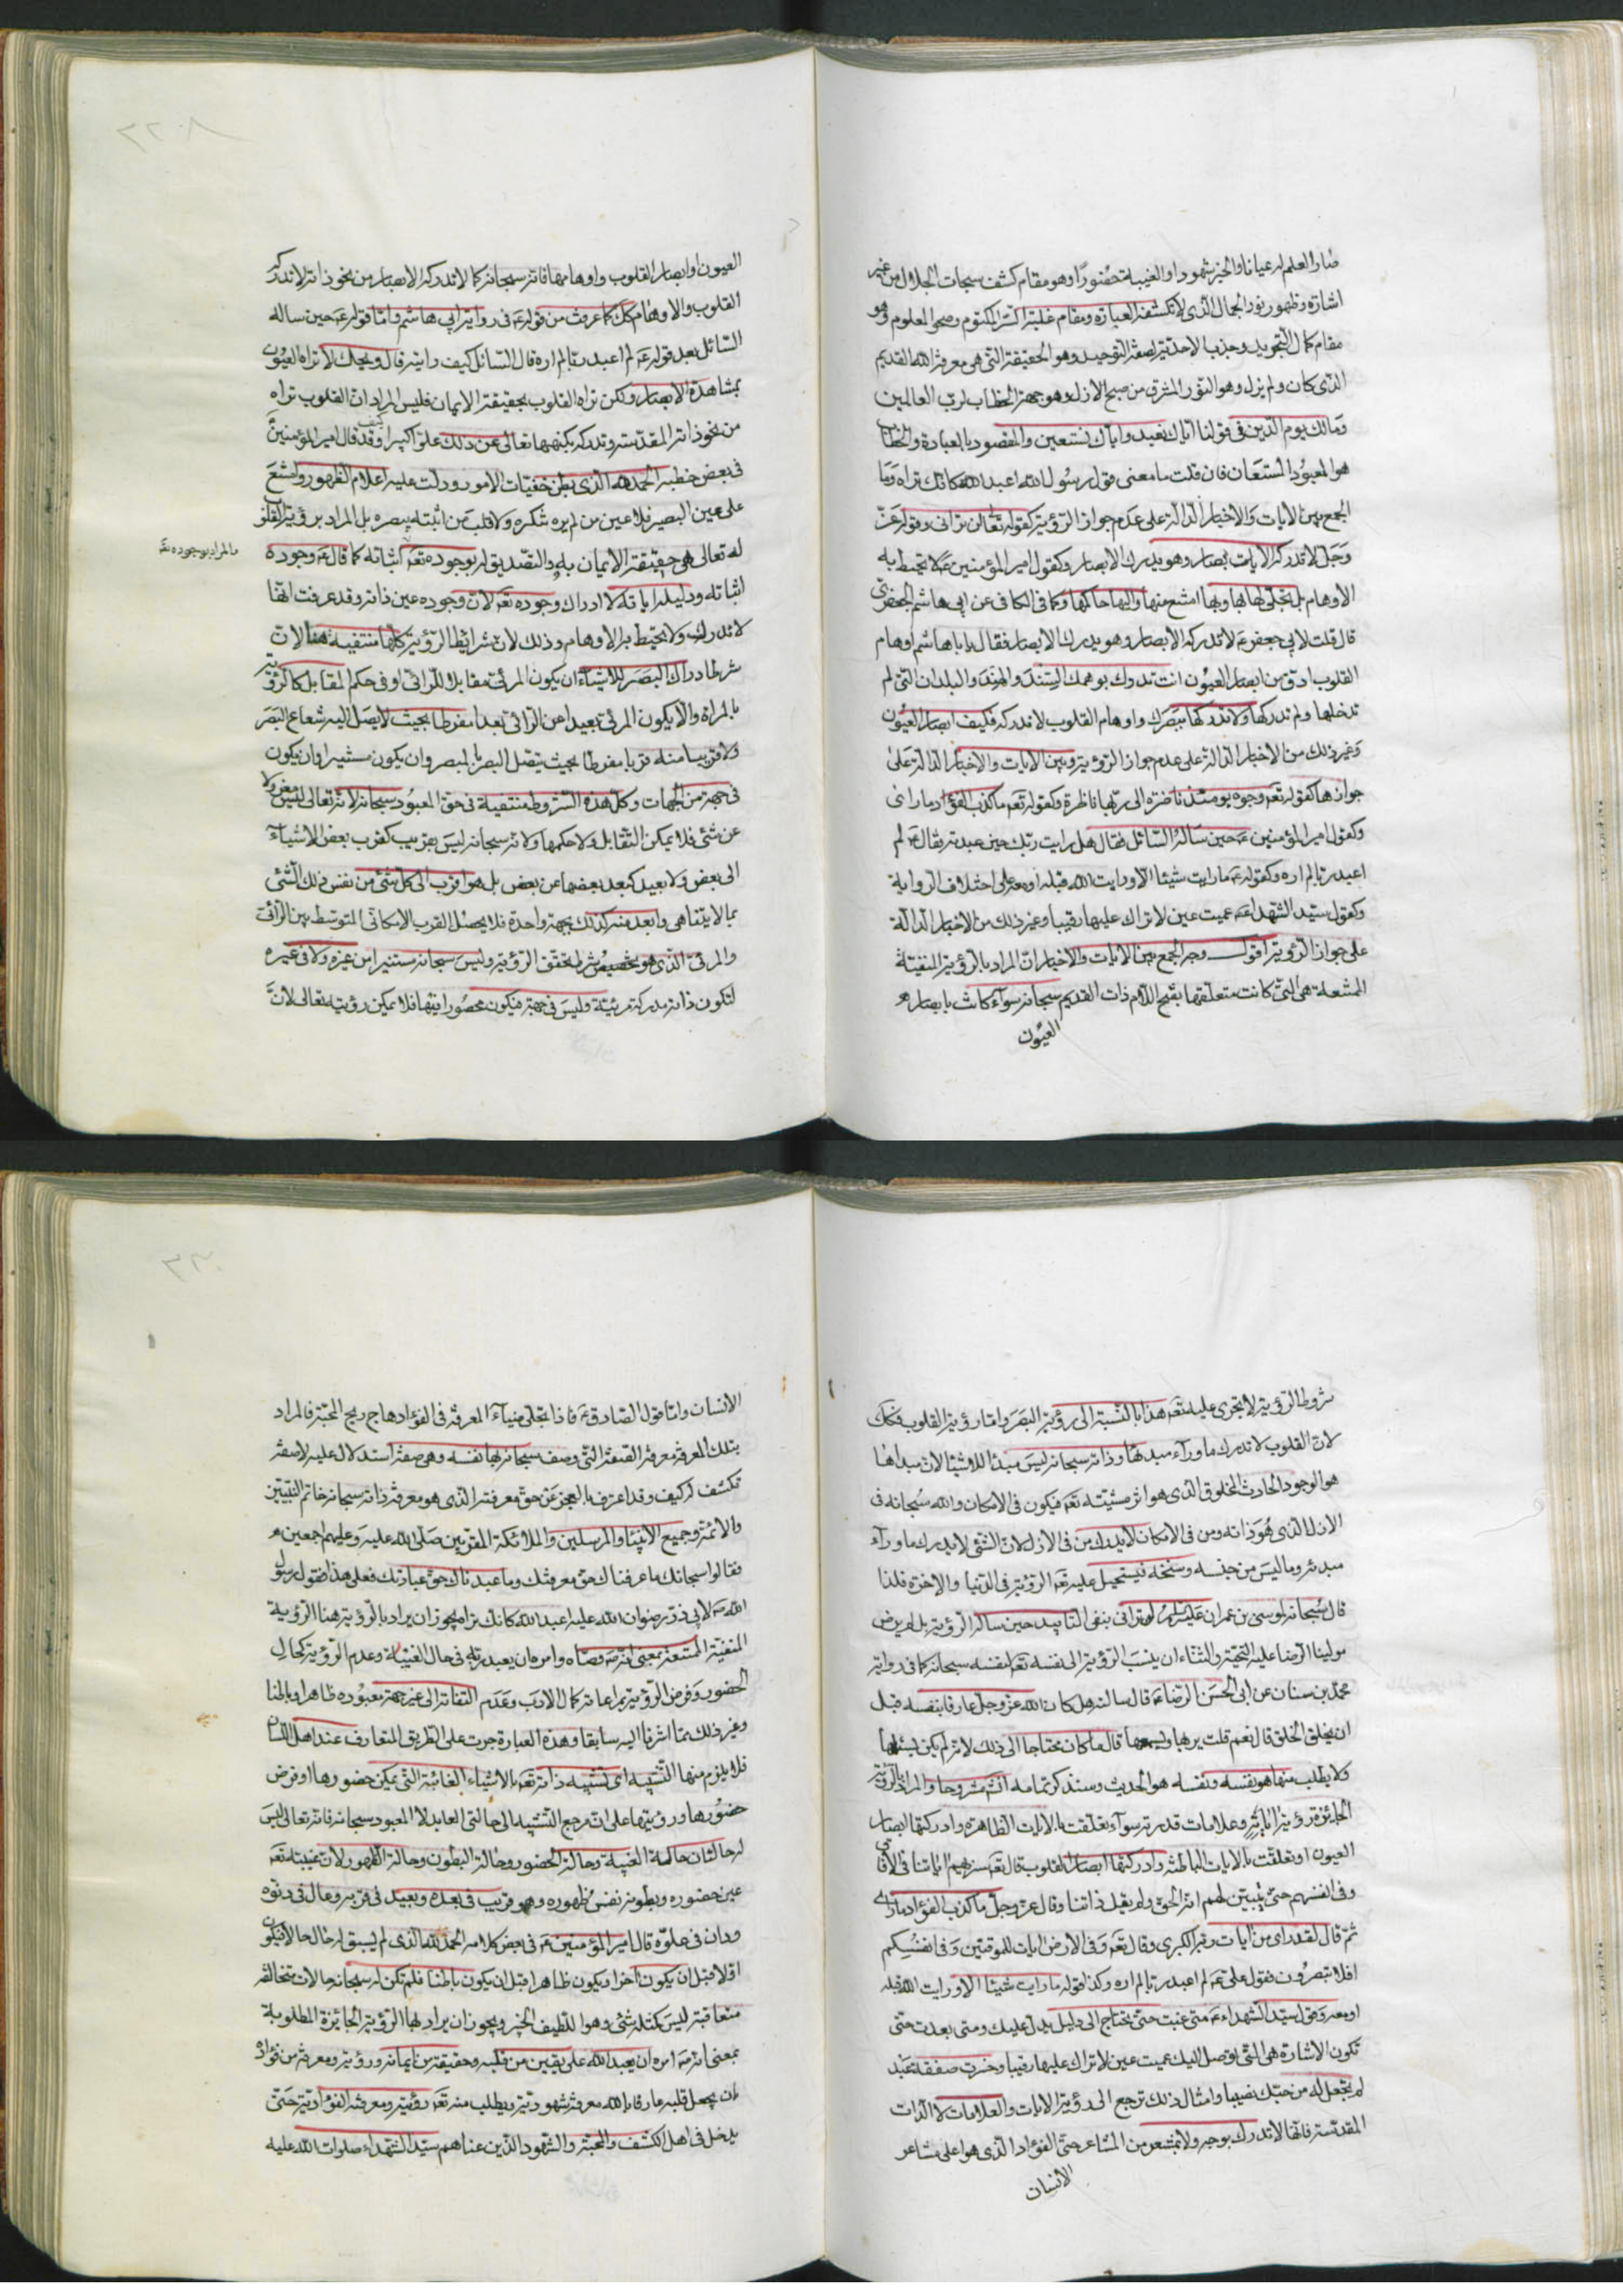 صار العلم له عيانا والخبر شهودا والغيبة حضورًا وهو مقام كشف سبحات الجلال من غير
اشارة وظهور نور الجمال الذى لا تكشفه العبارة ومقام غلبة السر المكتوم وصحو المعلوم وهو
مقام كمال التجريد وجذب الاحدية لصفة التوحيد وهو الحقيقة التى هى معرفة الله القديم
الذى كان ولم يزل وهو النور المشرق من صبح الازل وهو جهة الخطاب لرب العالمين
ومالك يوم الدين فى قولنا اياك نعبد واياك نستعين والمقصود بالعبادة والخطاب
هو المعبود المستعان فان قلت ما معنى قول رسول الله اعبد الله كانك تراه وما
الجمع بين الايات والاخبار الدالة على عدم جواز الرؤية كقوله تعالى لن ترانى وقوله عز
وجل لا تدركه الابصار وهو يدرك الابصار وكقول امير المؤمنين ع لا تحيط به
الاوهام بل تجلى لها بها وبها امتنع منها واليها حاكمها وكما فى الكافى عن ابى هاشم الجعفرى
قال قلت لابى جعفر ع لا تدركه الابصار وهو يدرك الابصار فقال يا ابا هاشم اوهام
القلوب ادق من ابصار العيون انت تدرك بوهمك السند والهند والبلدان التى لم
تدخلها ولم تدركها ولا تدركها ببصرك واوهام القلوب لا تدركه فكيف ابصار العيون
وغير ذلك من الاخبار الدالة على عدم جواز الرؤية وبين الايات والاخبار الدالة على
جوازها كقوله تع وجوه يومئذ ناضرة الى ربها ناظرة وكقوله تع ما كذب الفؤاد ما راى
وكقول امير المؤمنين ع حين ساله السائل فقال هل رايت ربك حين عبدته فقال ع لم
اعبد ربا لم اره وكقوله ع ما رايت شيئا الا ورايت الله قبله او معه على اختلاف الرواية
وكقول سيد الشهداء ع عميت عين لا تراك عليها رقيبا وغير ذلك من الاخبار الدالة
على جواز الرؤية اقول وجه الجمع بين الايات والاخبار ان المراد بالرؤية المنفية
هى التى كانت متعلقها بفتح اللام ذات القديم سبحانه سواء كانت بابصار
العيون
العيون او ابصار القلوب واوهامها فانه سبحانه كما لا تدركه الابصار من نحو ذاته لا تدركه
القلوب والاوهام كل كما عرفت من قوله ع فى رواية ابى هاشم واما قوله ع حين ساله
السائل بعد قوله ع لم اعبد ربا لم اره قال السائل كيف رايته قال ويحك لا تراه العيون
بمشاهدة الابصار ولكن تراه القلوب بحقيقة الايمان فليس المراد ان القلوب تراه
من نحو ذاته المقدسة وتدركه بكنهها تعالى عن ذلك علوا كبيرا كيف وقد قال امير المؤمنين
فى بعض خطبه الحمد لله الذى بطن خفيات الامور ودلت عليه اعلام الظهور وامتنع
على عين البصير فلا عين من لم يره تنكره ولا قلب من اثبته يبصره بل المراد برؤية القلوب
له تعالى هى حقيقة الايمان به والتصديق له بوجوده تع اثباته كما قال ع وجوده
اثباته ودليله اياته لا ادراك وجوده تع لان وجوده عين ذاته وقد عرفت انها
لا تدرك ولا يحيط بها الاوهام وذلك لان شرايط الرؤية كلها منتفية هنا لان
شرط ادراك البصر للاشياء ان يكون المرئى مقابلا للرائى او فى حكم المقابل كالرؤية
بالمراة والا يكون المرئى بعيدا عن الرائى بعدا مفرطا بحيث لا يصل اليه شعاع البصر
ولا قريبا منه قربا مفرطا بحيث يتصل البصر بالمبصر وان يكون مستنيرا وان يكون
فى جهة من الجهات وكل هذه الشروط منتفية فى حق المعبود سبحانه لانه تعالى ليس بمعزول
عن شئ فلا يمكن التقابل ولا حكمها ولانه سبحانه ليس بقريب كقرب بعض الاشياء
الى بعض ولا بعيد كبعد بعضها عن بعض بل هو اقرب الى كل شئ من نفس ذلك الشئ
بما لا يتناهى وابعد منه كذلك بجهة واحدة فلا يحصل القرب الامكانى المتوسط بين الرائى
والمرئى الذى هو شرط تحقق الرؤية وليس سبحانه مستنيرا من غيره ولا فى غيره
لتكون ذاته مدركة مرئية وليس فى جهة فيكون محصورا فيها فلا يمكن رؤيته تعالى لان
ما المراد بوجوده تع
شروط الرؤية لا تجرى عليه تع هذا بالنسبة الى رؤية البصر واما رؤية القلوب فكذلك
لان القلوب لا تدرك ما وراء مبدئها وذاته سبحانه ليس مبدئا للاشيئا لان مبداها
هو الوجود الحادث المخلوق الذى هو اثر مشيته تع فيكون فى الامكان والله سبحانه فى
الازل الذى هو ذاته ومن فى الامكان لا يدرك من فى الازل لان الشئ لا يدرك ما وراء
مبدئه وما ليس من جنسه وسنخه فيستحيل عليه تع الرؤية فى الدنيا والاخرة فلذا
قال سبحانه لموسى بن عمران عليه السلام لن ترانى بنفى التابيد حين ساله الرؤية بل لم يرض
مولينا الرضا عليه التحية والثناء ان ينسب الرؤية الى نفسه تع لنفسه سبحانه كما فى رواية
محمد بن سنان عن ابى الحسن الرضا ع قال سالته هل كان الله عز وجل عارفا بنفسه قبل
ان يخلق الخلق قال نعم قلت يريها ويسمعها قال ما كان محتاجا الى ذلك لانه لم يكن يسئلها
ولا يطلب منها هو نفسه ونفسه هو الحديث وسنذكر تمامه مشروحا والمراد بالرؤية
الجائزة رؤية اياته وعلامات قدرته سواء تعلقت بالايات الظاهرة وادركتها ابصار
العيون او تعلقت بالايات الباطنة وادركتها ابصار القلوب قال تع سنريهم اياتنا فى الافاق
وفى انفسهم حتى يتبين لهم انه الحق ولم يقل ذاتنا وقال عز وجل ما كذب الفؤاد ما راى
ثم قال لقد راى من ايات ربه الكبرى وقال تع وفى الارض ايات للموقنين وفى انفسكم
افلا تبصرون فقول على ع لم اعبد ربا لم اره وكذا قوله ما رايت شيئا الا ورايت الله قبله
او معه وقول سيد الشهداء ع متى غبت حتى تحتاج الى دليل يدل عليك ومتى بعدت حتى
تكون الاشارة هى التى توصل اليك عميت عين لا تراك عليها رقيبا وخسرت صفقة عبد
لم تجعل له من حبك نصيبا وامثال ذلك ترجع الى رؤية الايات والعلامات لا الذات
المقدسة فانها لا تدرك بوجه ولا بمشعر من المشاعر حتى الفؤاد الذى هو اعلى مشاعر
الانسان
الانسان واما قول الصادق ع فاذا تجلى ضياء المعرفة فى الفؤاد هاج ريح المحبة فالمراد
بتلك المعرفة معرفة الصفة التى وصف سبحانه بها نفسه وهى صفة استدلال عليه لا صفة
تكشف له كيف وقد اعترف بالعجز عن حق معرفته الذى هو معرفة ذاته سبحانه خاتم النبيين
والائمة وجميع الانبياء والمرسلين والملائكة المقربين صلى الله عليه وعليهم اجمعين
فقالوا سبحانك ما عرفناك حق معرفتك وما عبدناك حق عبادتك فعلى هذا فقول رسول
الله ص لابى ذر رضوان الله عليه اعبد الله كانك تراه يجوز ان يراد بالرؤية هنا الرؤية
المنفية الممتنعة بمعنى انه ص وصاه وامره ان يعبد ربه فى حال الغيبة وعدم الرؤية كحال
الحضور وفرض الرؤية بمراعاته كمال الادب وعدم التفاته الى غير جهة معبوده ظاهرا وباطنا
وغير ذلك مما اشرنا اليه سابقا وهذه العبارة جرت على الطريق المتعارف عند اهل اللسان
فلا يلزم منها التشبيه اى تشبيه ذاته تع بالاشياء الغائبة التى يمكن حضورها او فرض
حضورها ورؤيتها على ان مرجع التشبيه الى حالتى العابد لا المعبود سبحانه فانه تعالى ليس
له حالتان حالة الغيبة وحالة الحضور وحالة البطون وحالة الظهور لان غيبته تع
عين حضوره وبطونه نفس ظهوره وهو قريب فى بعده وبعيد فى قربه وعال فى دنوه
ودان فى علوه قال امير المؤمنين ع فى بعض كلامه الحمد لله الذى لم يسبق له حال حالا فيكون
اولا قبل ان يكون آخرا ويكون ظاهرا قبل ان يكون باطنا فلم تكن له سبحانه حالات متخالفة
متعاقبة ليس كمثله شئ وهو اللطيف الخبير ويجوز ان يراد بها الرؤية الجائزة المطلوبة
بمعنى انه ص امره ان يعبد الله على يقين من قلبه وحقيقة من ايمانه ورؤية ومعرفة من فؤاده
بان يجعل قلبه عارفا بالله معرفة شهودية ويطلب منه تع رؤيته ومعرفته الفؤادية حتى
يدخل فى اهل الكشف والمحبة والشهود الذين عناهم سيد الشهداء صلوات الله عليه